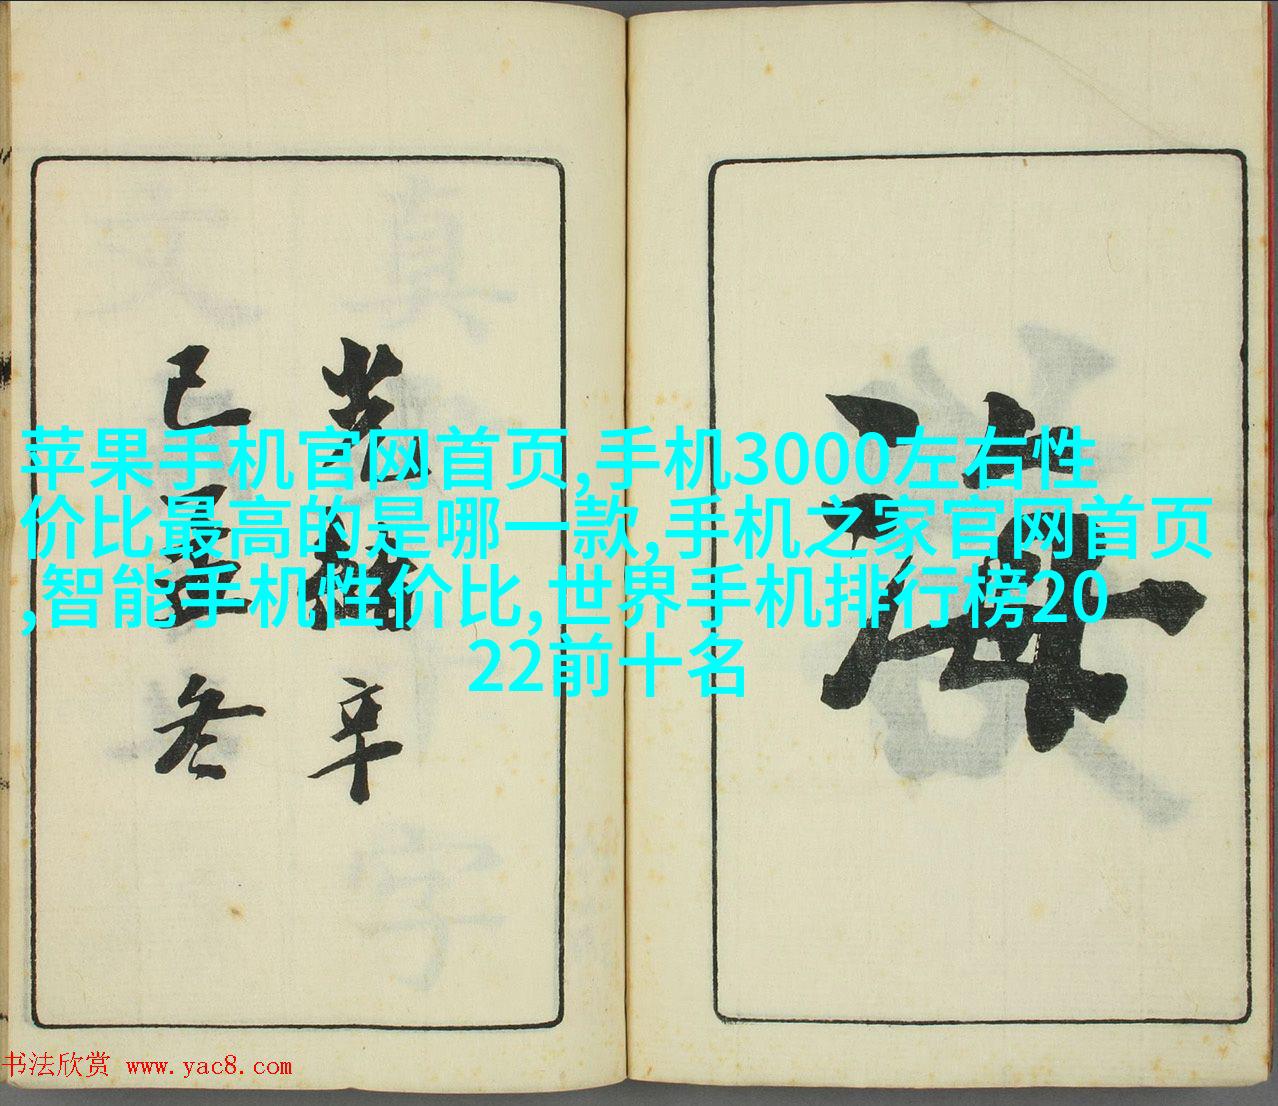 苹果手机官网首页,手机3000左右性
价比最高的是哪一款,手机之家官网首页
,智能手机性价比,世界手机排行榜20
22前十名
海
光緒辛
巳冬
书法欣赏 www.yac8.com